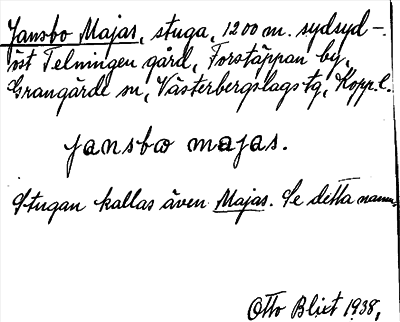 Jansbo Majas, stuga, 1200 m. sydsyd-
öst Telningen gård, Forstäppan by,
Grangärde sn, Västerbergslags tg, Kopp. l.
jansbω majas.
Stugan kallas även Majas. Se detta namn.
Otto Blixt 1938,